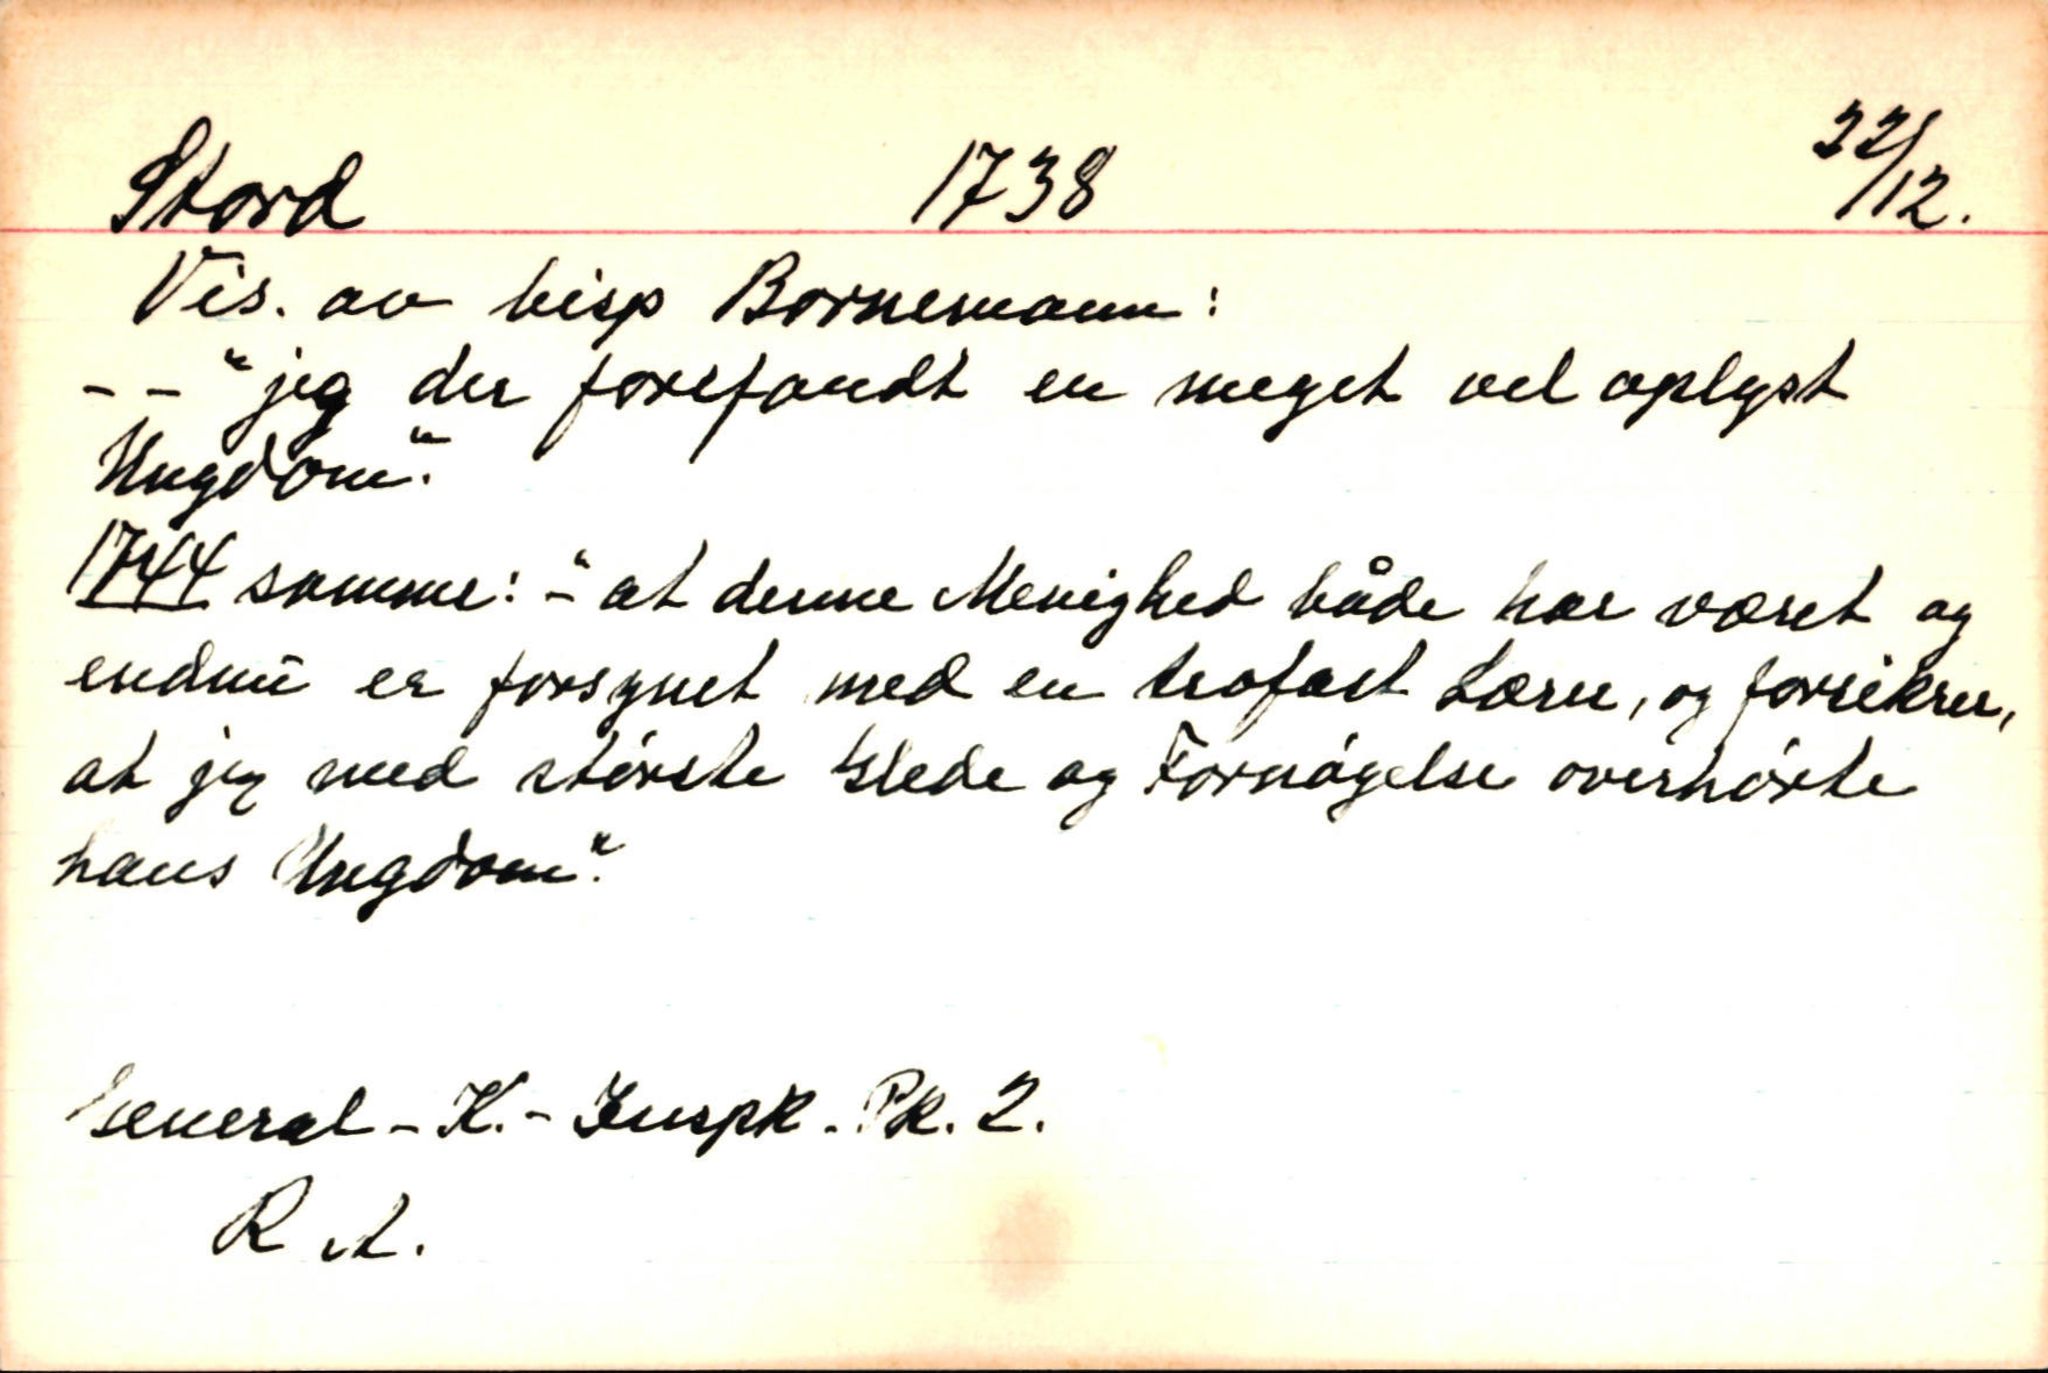 Stord 1738 22/12.
Vis. av bisp Bornemann:
- - "jeg der forefandt en meget vel oplyst
Ungdom".
1744 samme: - "at denne Menighed både har været og
endnu er forsynet med en trofast Lærer, og forsikrer,
at jeg med største Glede og Fornøgelse overhørte
hans Ungdom".
General - K. - Inspk. Pk. 2.
R A.